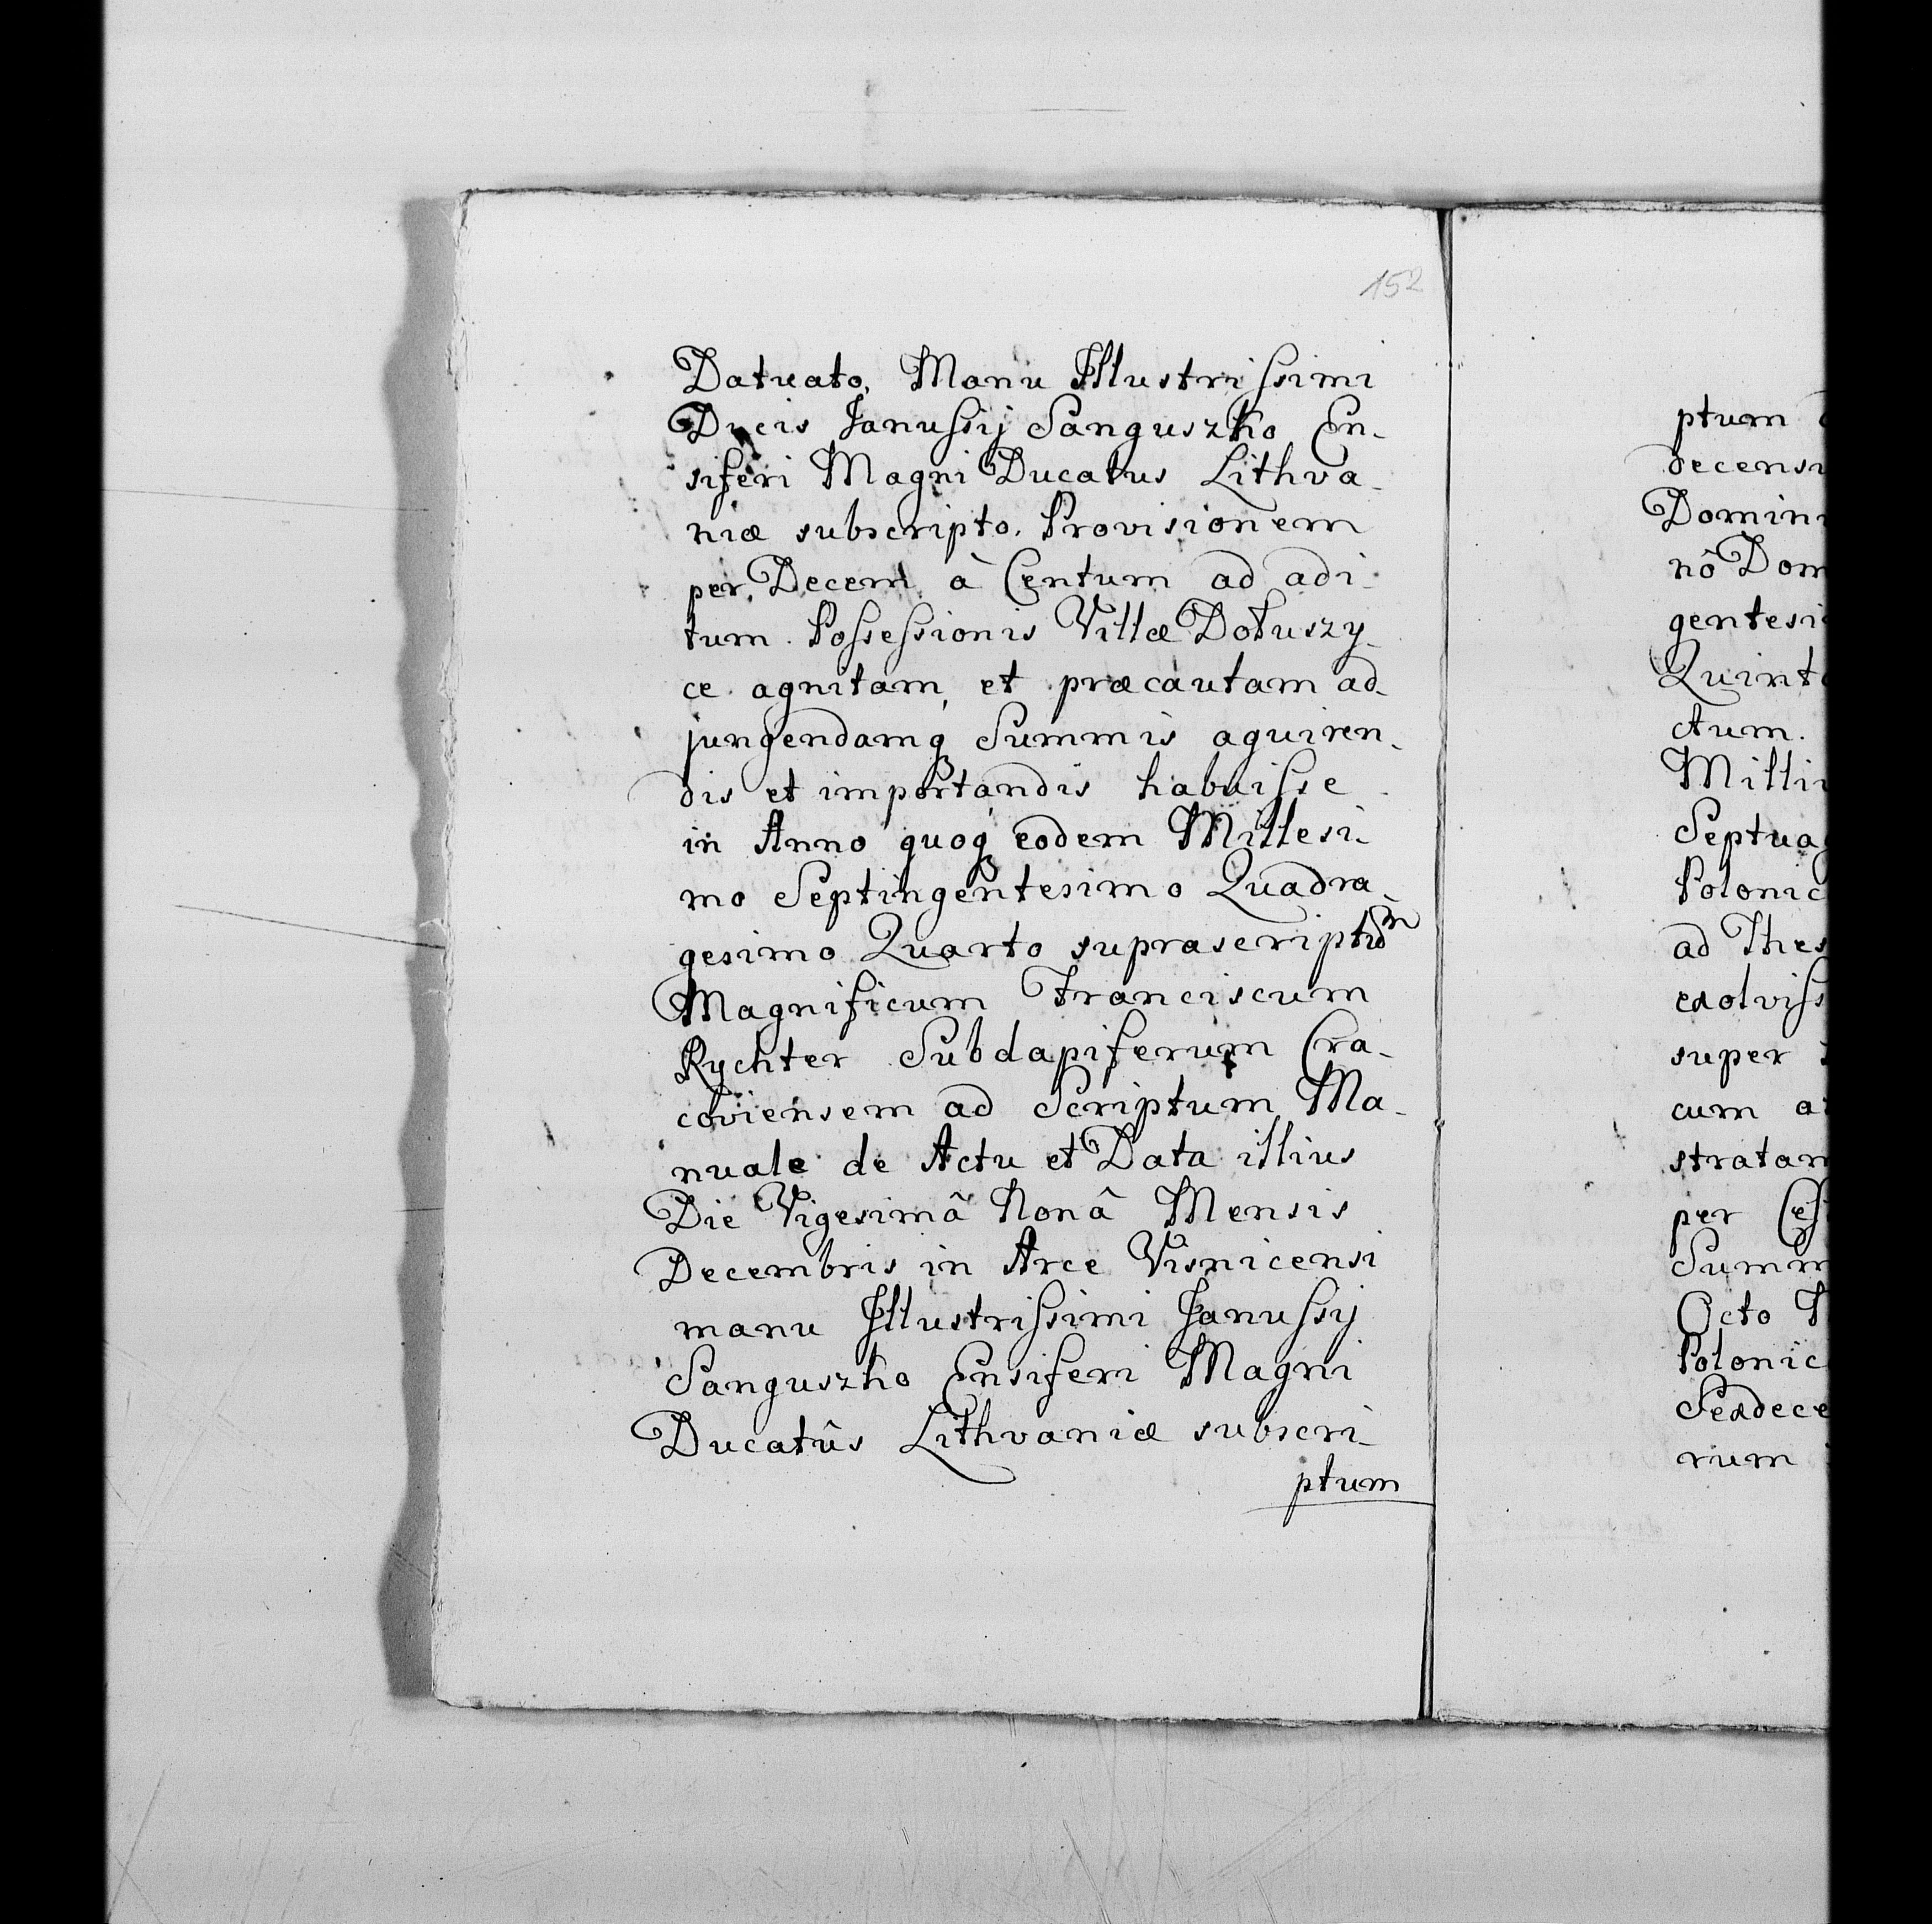 152
Datuato, Manu Illustrissimi
Ducis Janussij Sanguszko En-
siferi Magni Ducatus Lithva-
niæ subscripto. Provisionem
per Decem à Centum ad adi-
tum Possessionis Villæ Dołuszy-
ce agnitam, et præcautam ad-
jungendamq Summis aquiren-
dis et importandis habuisse
in Anno quoq eodem Millesi-
mo Septingentesimo Quadra-
gesimo Quarto suprascriptum
Magnificum Franciscum
Rychter Subdapiferum Cra-
coviensem ad Scriptum Ma-
nuale de Actu et Data illius
Die Vigesimâ Nonâ Mensis
Decembris in Arce Visnicensi
manu Illustrissimi Janussij
Sanguszko Ensiferi Magni
Ducatûs Lithvaniæ subscri-
ptum
ptum
decensi
Domini
nô Dom
gentesi
Quinto
ctum.
Milli
Septuag
Polonic
ad Thes
exolviss
super
cum a
stratam
per Cess
Summ
Octo
Polonic
Sexdece
rum